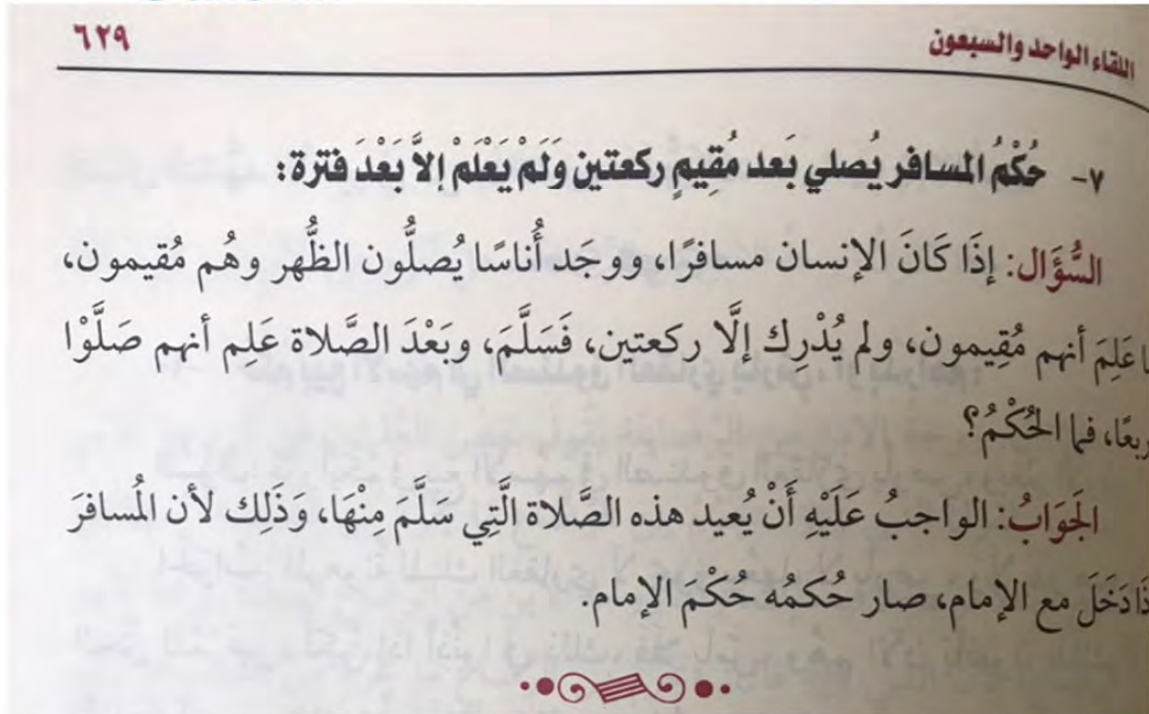 ٦٢٩
اللقاء الواحد والسبعون
٧- حُكْمُ المسافر يُصلي بَعد مُقِيمٍ ركعتين وَلَمْ يَعْلَمْ إلاَّ بَعْدَ فترة:
السُّؤَال: إِذَا كَانَ الإنسان مسافرًا، ووجَد أُناسًا يُصلُّون الظُّهر وهُم مُقيمون،
عَلِمَ أنهم مُقِيمون، ولم يُدْرِك إلَّا ركعتين، فَسَلَّمَ، وبَعْدَ الصَّلاة عَلِم أنهم صَلَّوْا
فما الحُكْمُ؟
الجَوَابُ: الواجبُ عَلَيْهِ أَنْ يُعيد هذه الصَّلاة الَّتِي سَلَّمَ مِنْهَا، وَذَلِك لأن المُسافرَ
دَخَلَ مع الإمام، صار حُكمُه حُكْمَ الإمام.